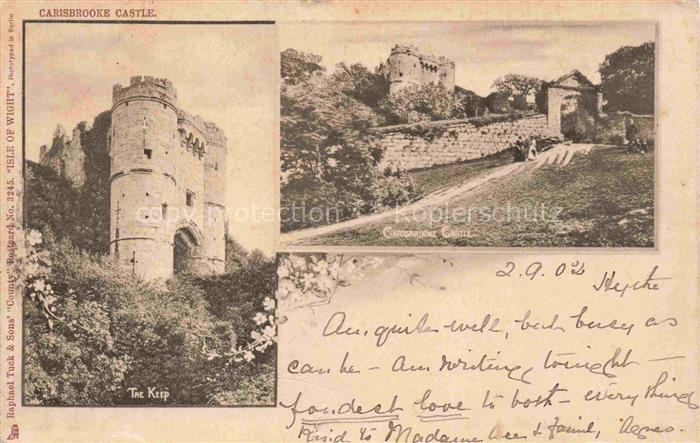 CARISBROOKE CASTLE.
Raphael Tuck & Sons' "County" Postcard No. 3245. "ISLE OF WIGHT". Phototyped in Berlin
THE KEEP
CARISBROOKE CASTLE
copyright protection
Kopierschutz
2.9.02
Hythe
Am quite well, but busy as
can be – Am writing tonight –
fondest love to both – everything
kind to Madame & Agnes.